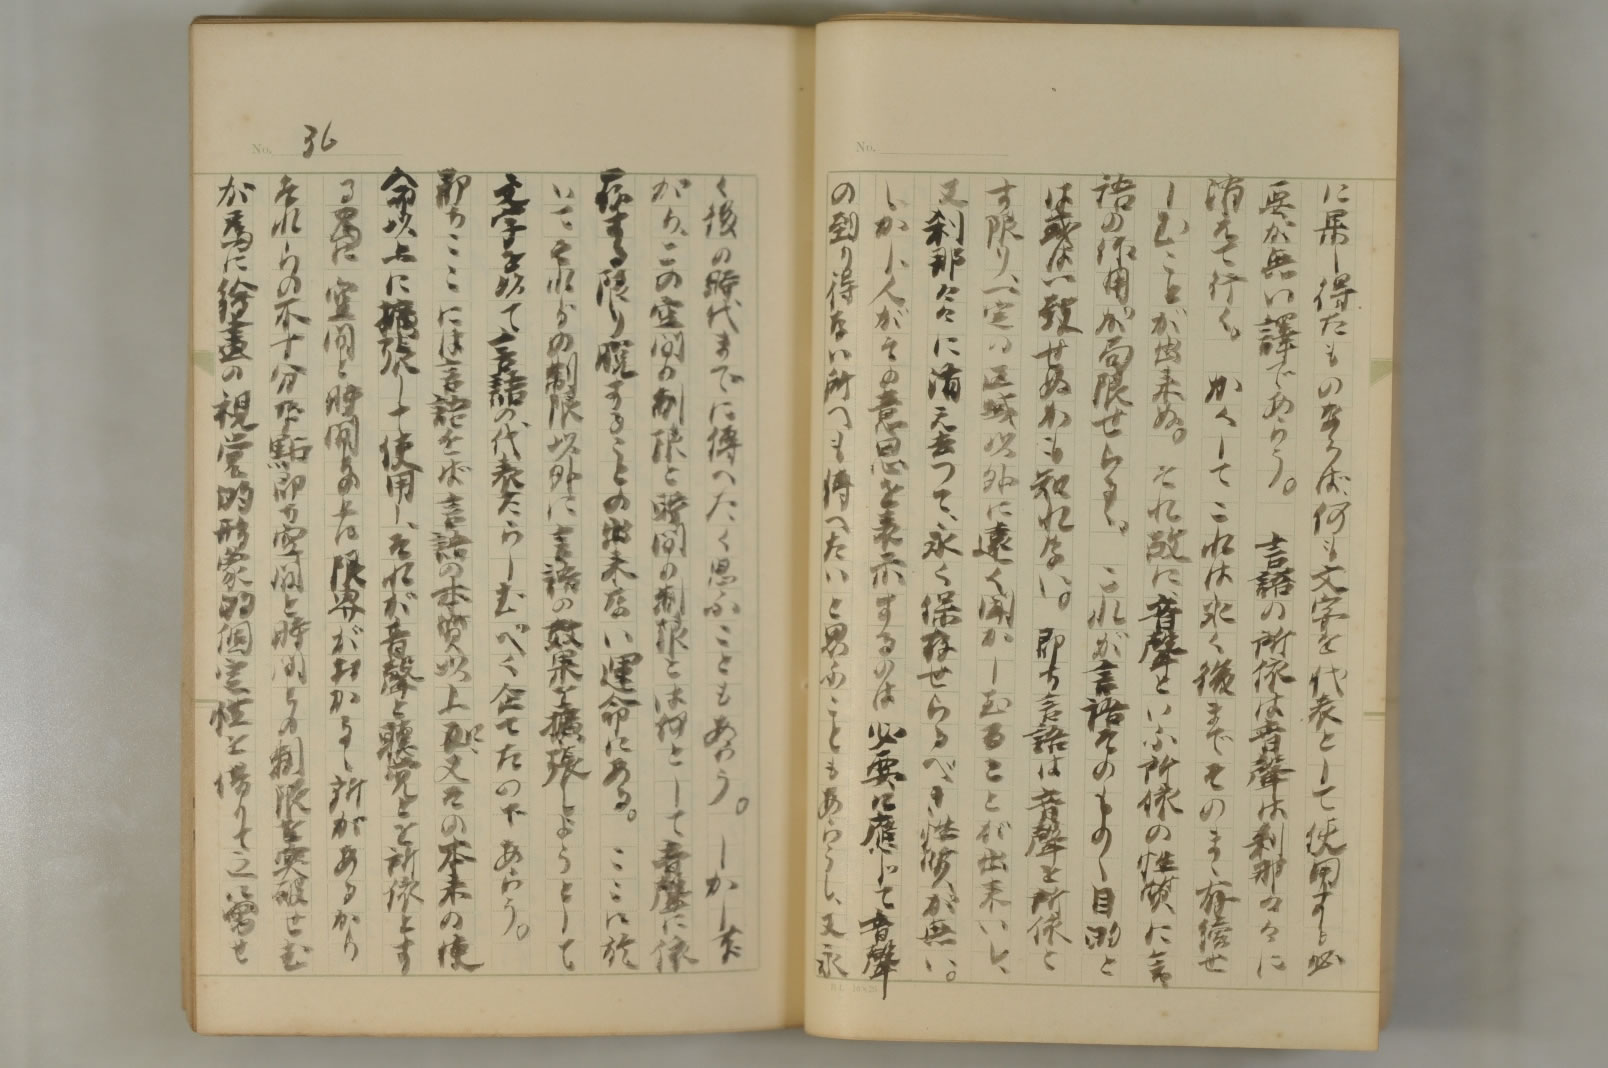 No.
に果し得たものならば、何も文字を代表として使用する必
要が無い譯であらう。 言語の所依は音聲は刹那々々に
消えて行く。 かくしてこれは永く後までそのまゝ存續せ
しむことが出来ぬ。それ故に、音聲といふ所依の性質に言
語の作用が局限せらるゝ。 これが言語そのものゝ目的と
は或は一致せぬかも知れない。 即ち言語は音聲を所依と
す限り、一定の區域以外に遠く聞かしむることが出来ないし、
又刹那々々に消え去つて、永く保存せらるべき性質が無い。
しかし人がその意思を表示するのは必要に應じて音聲
の到り得ない所へも傳へたいと思ふこともあらうし、又永
No. 36
く後の時代までに傳へたく思ふこともあらう。しかし
がら、この空間の制限と時間の制限とは何として音聲に依
存する限り脱することの出来ない運命にある。 ここに於
いてそれらの制限以外に言語の效果を擴張しようとして
文字を以て言語の代表たらしむべく企てたのであらう。
即ちここには言語をば言語の本質以上に、又その本来の使
命以上に擴張して使用し、それが音聲と聽覺とを所依とす
る為に空間と時間との上に限界がおかるゝ所があるから
それらの不十分な點即ち空間と時間との制限を突破せむ
が為に繪畫の視覺的形象的固定性を借りて之に寓せ